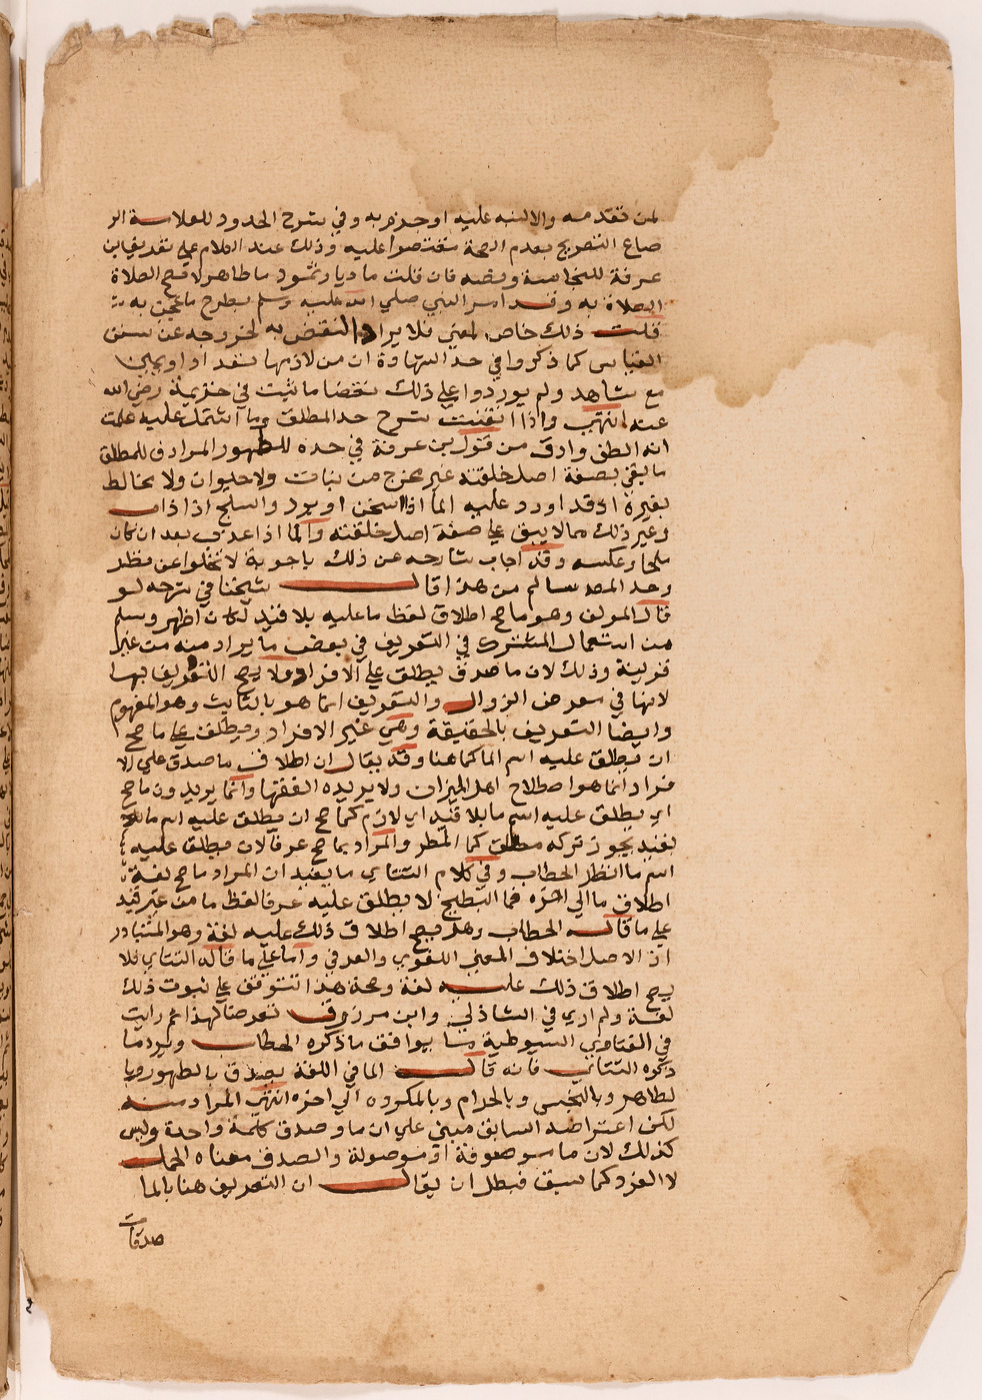 لمن تقدمه والا لنبه عليه او جزم به وفي شرح الحدود للعلامة الر
صاع التصريح بعدم الصحة مقتصرا عليه وذلك عند الكلام علي تعريف ابن
عرفة للنجاسة ونصه فان قلت ماديار ثمود ما طاهر لا تصح الصلاة
الصلاة به وقد امر النبي صلي الله عليه وسلم بطرح ما عجن به
قلت ذلك خاص لمعني فلا يراد النقض به لخروجه عن سنن
القياس كما ذكروا في حد الشهادة ان من لازمها تعدد او يمين
مع شاهد ولم يوردوا علي ذلك نقضا ما ثبت في خزيمة رضي الله
عنه انتهي واذا اتقنت شرح حد المطلق وما اشتمل عليه علمت
انه الطف وادق من قول بن عرفة في حده للطهور المرادف للمطلق
ما بقي بصفة اصل خلقته غير مخرج من نبات ولا حيوان ولا مخالط
بغيره اذ قد اورد عليه الما اذا سخن او برد والملح اذا ذاب
وغير ذلك مما لا يبق علي صفة اصل خلقته والما اذا عذب بعد ان كان
ملحا وعكسه وقد اجاب شارحه عن ذلك باجوبة لا تخلوا عن نظر
وحد المصـ سالم من هذا قال شيخنا في شرحه لو
قال المولف وهو ما صح اطلاق لفظ ما عليه بلا قيد لكان اظهر وسلم
من استعمال المشترك في التعريف في بعض ما يراد منه من غير
قرينة وذلك لان ما صدق يطلق علي الافراد ولا يصح التعريف بها
لانها في معرض الزوال والتعريف انما هو بالثابت وهو المفهوم
وايضا التعريف بالحقيقة وهي غير الافراد ويطلق علي ما صح
ان يطلق عليه اسم الما كما هنا وقد يقال ان اطلاق ما صدق علي الا
فراد انما هو اصطلاح اهل الميزان ولا يريده الفقها وانما يريدون ما صح
ان يطلق عليه اسم ما بلا قيد اي لازم كما صح ان يطلق عليه اسم ما
بقيد يجوز تركه كما المطر والمراد بما صح عرفا لان يطلق عليه
اسم ما انظر الحطاب وفي كلام التتاي ما يفيد ان المراد ما صح لغة
اطلاق ما الي اخره فما البطيخ لا يطلق عليه عرفا لفظ ما من غير قيد
علي ما قاله الحطاب وهل يصح اطلاق ذلك عليه لغة وهو المتبادر
اذ الاصل اختلاف المعني اللغوي والعرفي واما علي ما قاله التتاي فلا
يصح اطلاق ذلك عليه لغة وصحة هذا تتوقف علي ثبوت ذلك
لغة ولم ار في الشاذلي وابن مرزوق تعرضا لهذا ثم رايت
في الفتاوي السيوطية ما يوافق ما ذكره الحطاب ويرد ما
ذكره التتاي فانه قال الما في اللغة يصدق بالطهور وبا
لطاهر وبالنجس وبالحرام وبالمكروه الي اخره انتهي المراد منه
لكن اعتراضه السابق مبني علي ان ما وصدق كلمة واحدة وليس
كذلك لان ما موصوفة او موصولة والصدق معناه الحمل
لا الفرد كما سبق فبطل ان يقال ان التعريف هنا بالما
صدقات